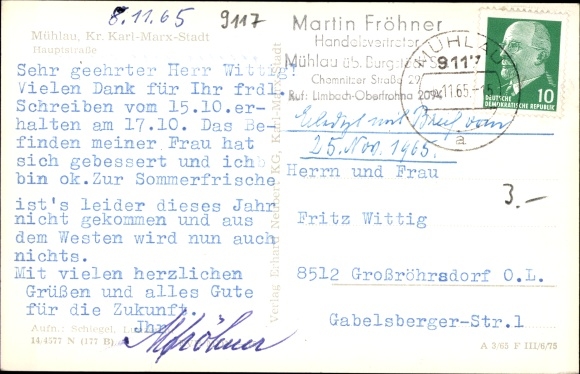 8.11.65
9117
Mühlau, Kr. Karl-Marx-Stadt
Hauptstraße
Sehr geehrter Herr Wittig!
Vielen Dank für Ihr frdl.
Schreiben vom 15.10.er-
halten am 17.10. Das Be-
finden meiner Frau hat
sich gebessert und ich
bin ok.Zur Sommerfrische
ist's leider dieses Jahr
nicht gekommen und aus
dem Westen wird nun auch
nichts.
Mit vielen herzlichen
Grüßen und alles Gute
für die Zukunft
Ihr
MFröhner
Aufn.: Schlegel,
14/4577 N (177 B)
Verlag Erhard Neubert KG, Karl-Marx-Stadt
Martin Fröhner
Handelsvertreter
Mühlau üb. Burgstädt
Chemnitzer Straße 29
Ruf: Limbach-Oberfrohna 2094
MÜHLAU
9117
.11.65.-
a
DEUTSCHE
DEMOKRATISCHE REPUBLIK
10
Erledigt mit Brief vom
25. Nov. 1965.
Herrn und Frau
3.-
Fritz Wittig
8512 Großröhrsdorf O.L.
Gabelsberger-Str.1
A 3/65 F III/6/75